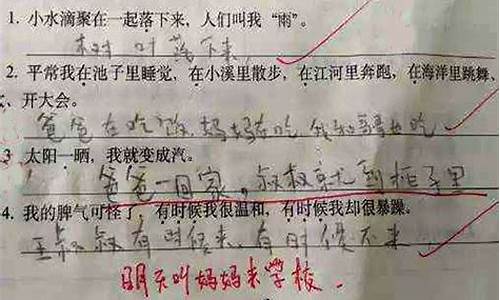 1. 小水滴聚在一起落下来，人们叫我“雨”。
树叶落下来
2. 平常我在池子里睡觉，在小溪里散步，在江河里奔跑，在海洋里跳舞、
、开大会。
爸爸在吃饭 妈妈在吃 我和哥哥在吃
3 太阳一晒，我就变成汽。
爸爸一回家，叔叔就到柜子里
4. 我的脾气可怪了，有时候我很温和，有时候我却很暴躁。
王叔叔有时候来，有时候不来
明天叫妈妈来学校.